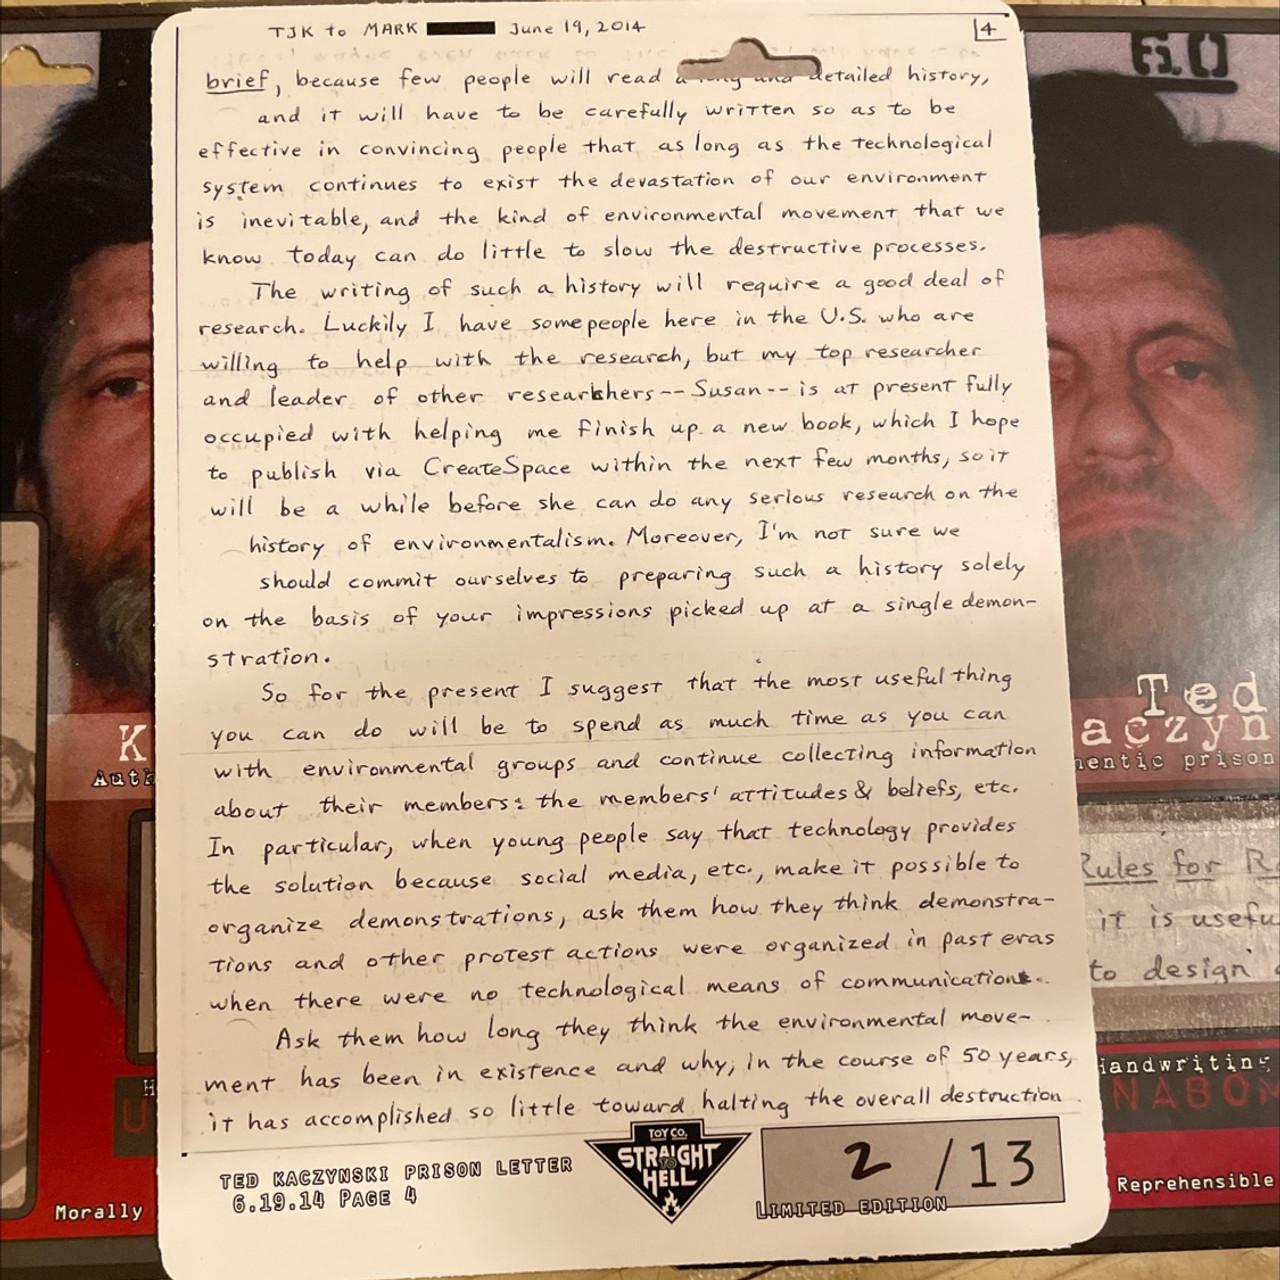 TJK to MARK June 19, 2014
4
brief, because few people will read a long and detailed history,
and it will have to be carefully written so as to be
effective in convincing people that as long as the technological
system continues to exist the devastation of our environment
is inevitable, and the kind of environmental movement that we
know today can do little to slow the destructive processes.
The writing of such a history will require a good deal of
research. Luckily I have some people here in the U.S. who are
willing to help with the research, but my top researcher
and leader of other researchers -- Susan -- is at present fully
occupied with helping me finish up a new book, which I hope
to publish via CreateSpace within the next few months, so it
will be a while before she can do any serious research on the
history of environmentalism. Moreover, I'm not sure we
should commit ourselves to preparing such a history solely
on the basis of your impressions picked up at a single demon-
stration.
So for the present I suggest that the most useful thing
you can do will be to spend as much time as you can
with environmental groups and continue collecting information
about their members: the members' attitudes & beliefs, etc.
In particular, when young people say that technology provides
the solution because social media, etc., make it possible to
organize demonstrations, ask them how they think demonstra-
tions and other protest actions were organized in past eras
when there were no technological means of communication.
Ask them how long they think the environmental move-
ment has been in existence and why, in the course of 50 years,
it has accomplished so little toward halting the overall destruction
TED KACZYNSKI PRISON LETTER
6.19.14 PAGE 4
TOY CO.
STRAIGHT
TO
HELL
2/13
LIMITED EDITION
K
Auth
H
U
Morally
60
Ted
aczyn
hentic prison
Rules for R
it is usefu
to design
Handwriting
NABOM
Reprehensible